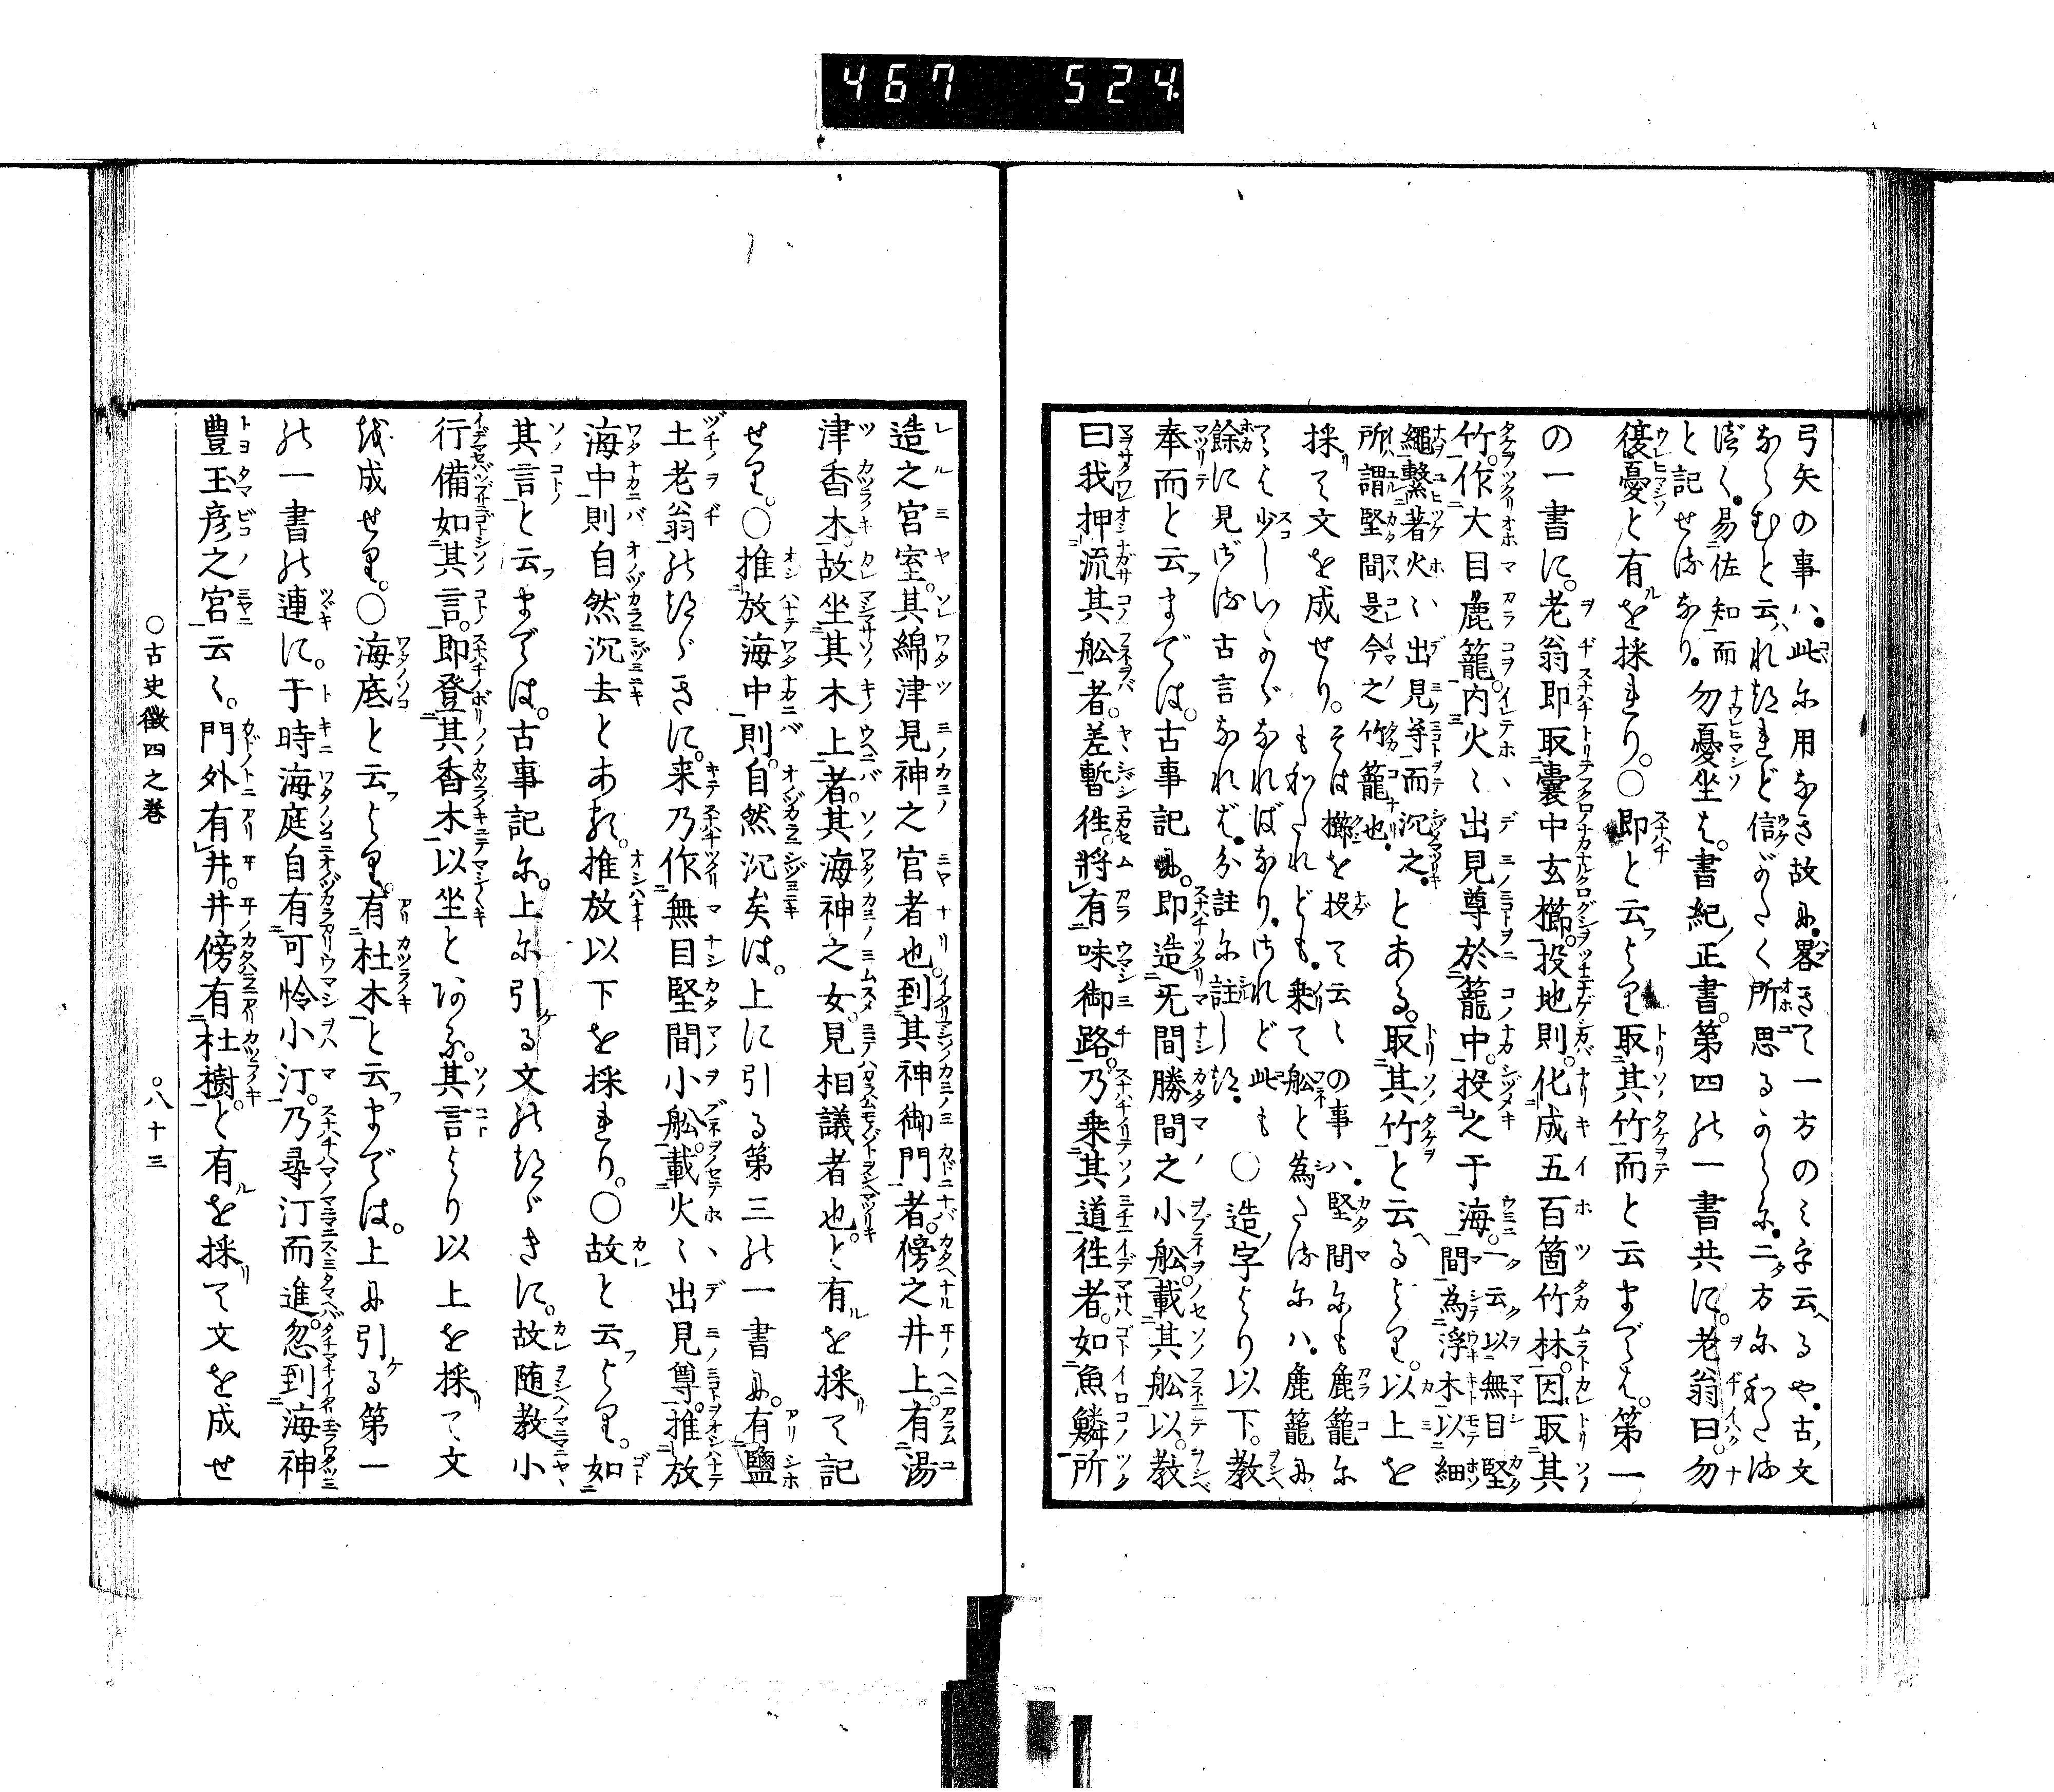 467 524
弓矢の事ハ此に用なき故に畧きて一方のミ字云るや古文
ならむと云れたれど信がたく所思るからに二方にわたる
づく易佐知而と記せるなり
勿憂坐は書紀正書第四の一書共に老翁曰勿
復憂と有を採れり〇即と云より取其竹而と云までは第一
の一書に老翁即取囊中玄櫛投地則化成五百箇竹林因取其
竹作大目麁籠内火〻出見尊於籠中投之于海一云以無目堅
間為浮木以細
繩繫著火〻出見尊而沉之
所謂堅間是今之竹籠也とある取其竹と云るより以上を
採て文を成せりそは櫛を投て云〻の事ハ堅間にも麁籠に
もわたれども乗て船と為たるにハ麁籠に
ては少しいかゞなればなりされど此も
餘に見ざる古言なれば分註に註しつ
〇造字より以下教
奉而と云までは古事記に即造无間勝間之小船載其船以教
曰我押流其船者差暫徃將有味御路乃乗其道徃者如魚鱗所
造之宮室其綿津見神之宮者也到其神御門者傍之井上有湯
津香木故坐其木上者其海神之女見相議者也と有を採て記
せり〇推放海中則自然沉矣は上に引る第三の一書に有鹽
土老翁のつゞきに来乃作無目堅間小船載火〻出見尊推放
海中則自然沉去とある推放以下を採れり〇故と云より如
其言と云までは古事記に上に引る文のつゞきに故随教小
行備如其言即登其香木以坐とある其言より以上を採て文
を成せり〇海底と云より有杜木と云までは上に引る第一
の一書の連に于時海庭自有可怜小汀乃尋汀而進忽到海神
豊玉彦之宮云〻門外有井井傍有杜樹と有を採て文を成せ
〇古史徴四之巻 〇八十三